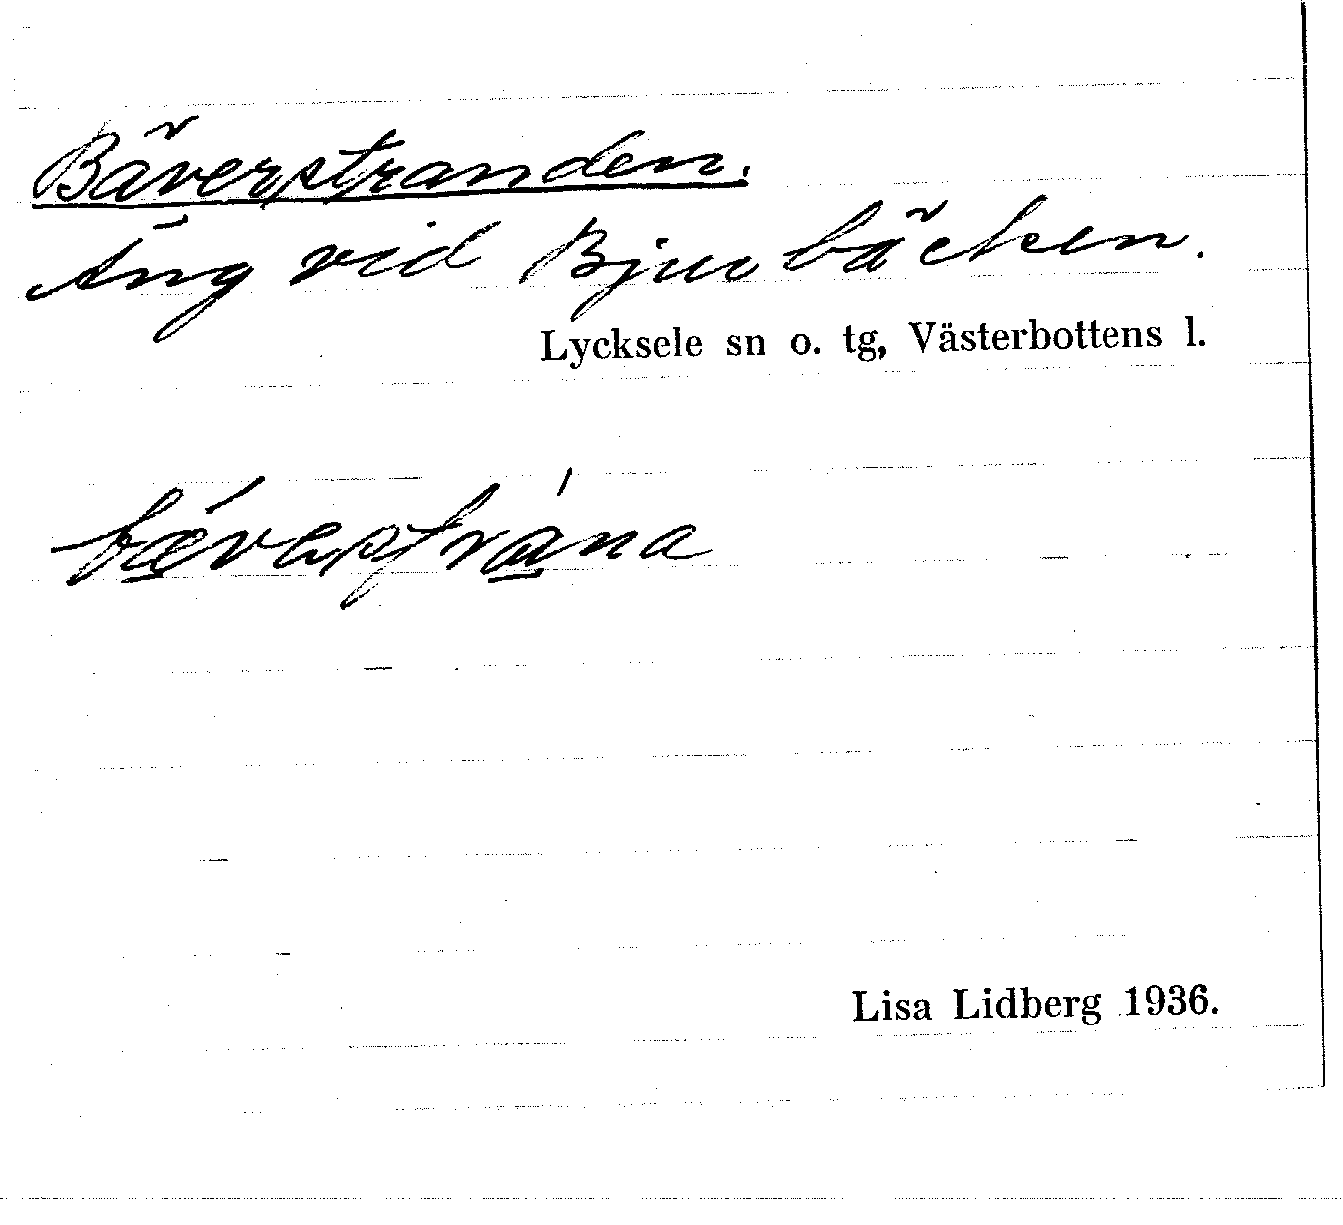 Bäverstranden.
Äng vid Bjurbäcken.
Lycksele sn o. tg, Västerbottens l.
Lisa Lidberg 1936.